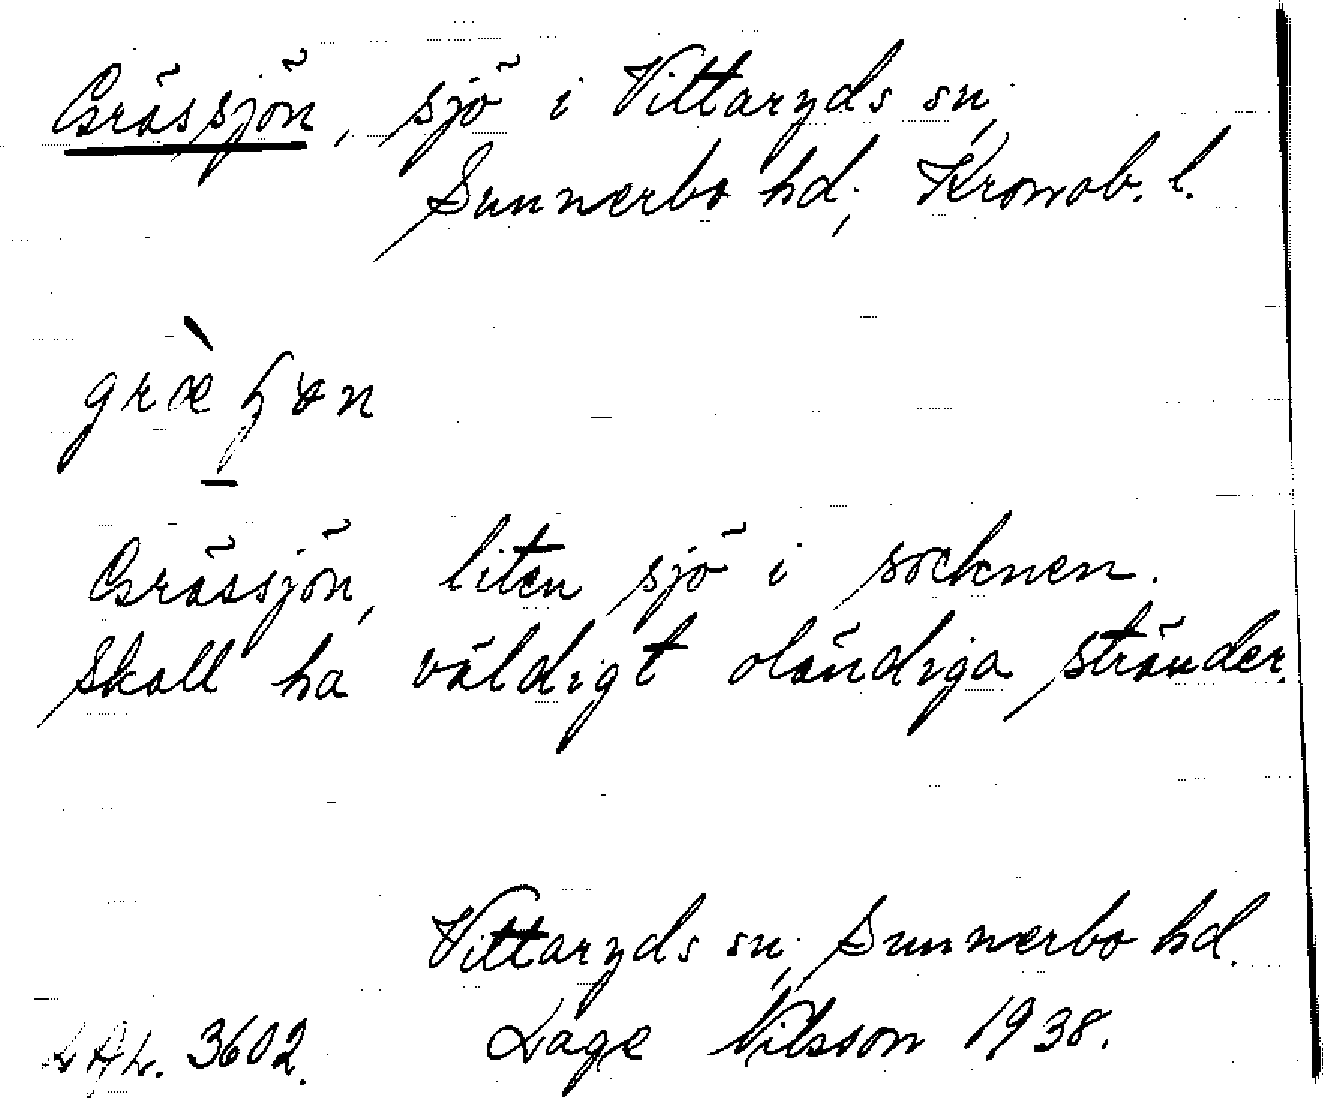 Grässjön, sjö i Vittaryds sn.,
Sunnerbo hd., Kronob. l.
Grässjön, liten sjö i socknen.
Skall ha väldigt oländiga stränder.
Vittaryds sn., Sunnerbo hd.
LAL. 3602. Lage Nilsson 1938.